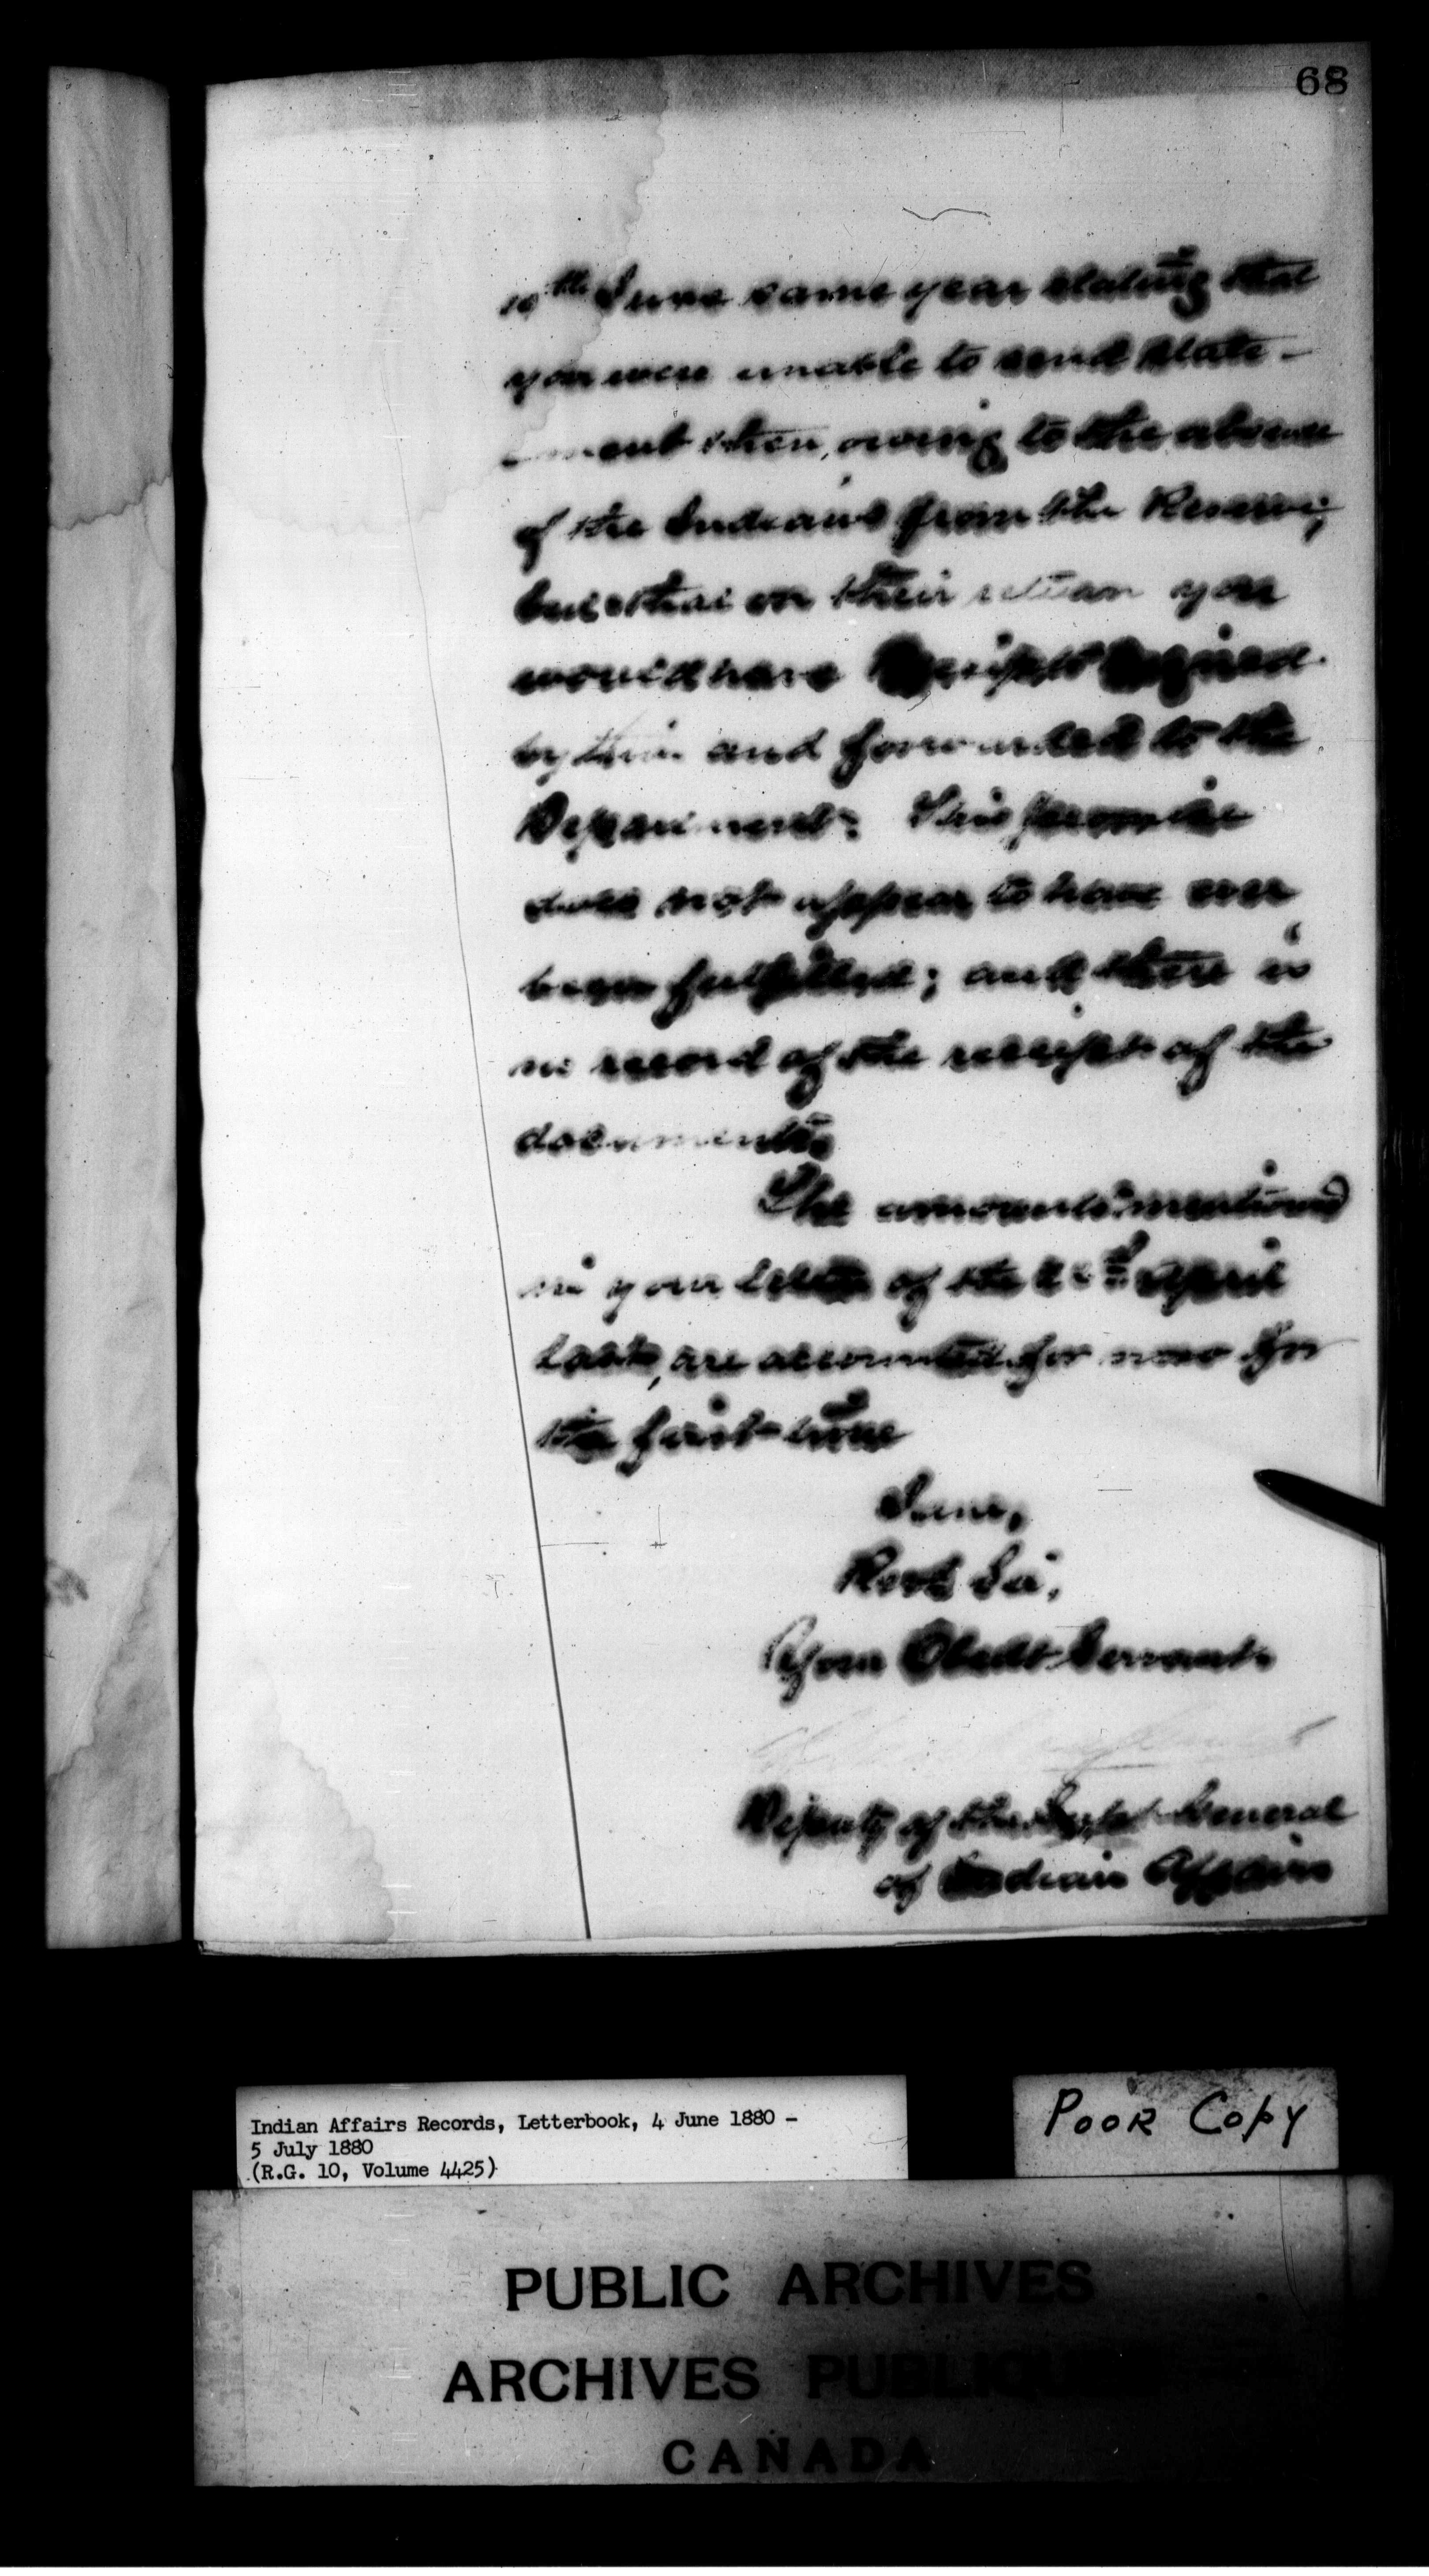 68
10th June same year stating that
you were unable to send state-
-ment then, owing to the absence
of the Indians from the Reserve;
but that on their return you
would have Receipts signed
by them and forwarded to the
Department. This promise
does not appear to have ever
been fulfilled; and there is
no record of the receipt of the
documents.
The amounts mentioned
in your letter of the April
last, are accounted for now for
the first time
I am,
Revd Sir,
Your Obedt Servant
Deputy of the Supt General
of Indian Affairs
Indian Affairs Records, Letterbook, 4 June 1880 -
5 July 1880
(R.G. 10, Volume 4425)
POOR COPY
PUBLIC ARCHIVES
ARCHIVES PUBLIQUES
CANADA